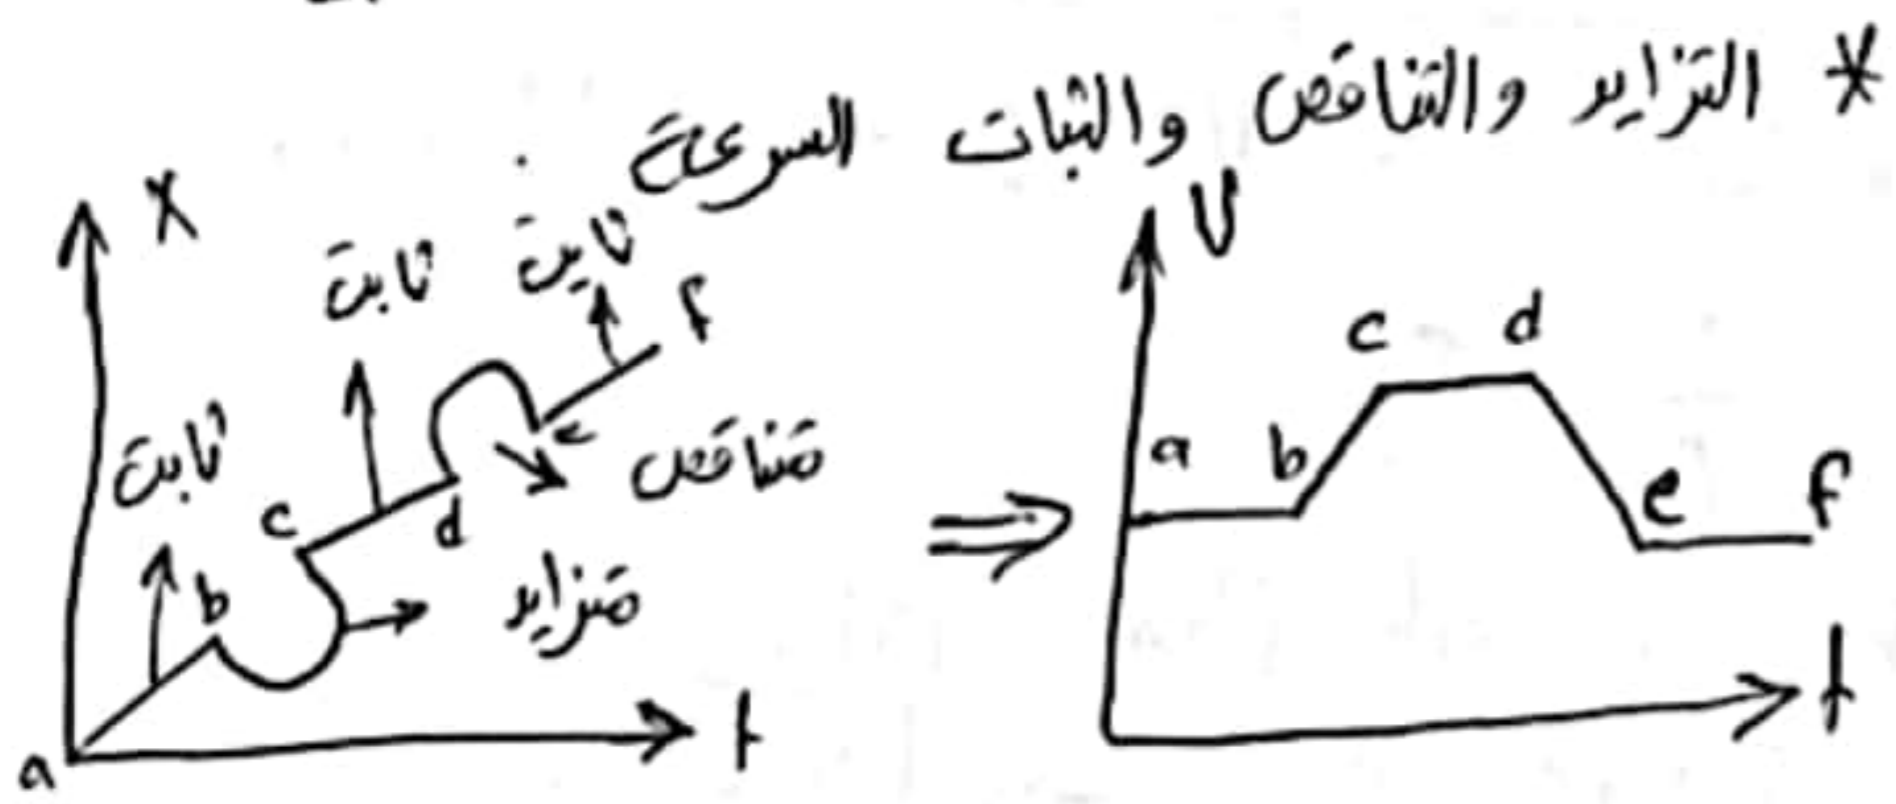 * التزايد والتناقص والثبات السرعة .
X
ثابت
ثابت
ثابت
f
e
متناقص
c
d
متزايد
b
a
t
⇒
V
c
d
a
b
e
f
t